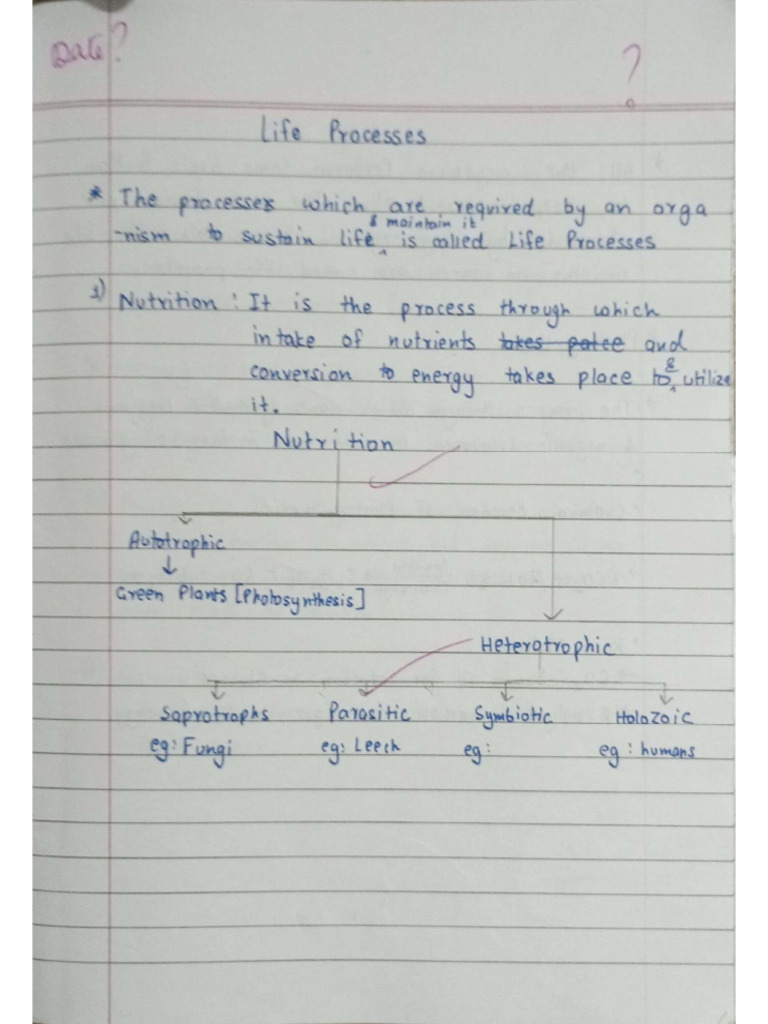 Date?
?
Life Processes
* The processes which are required by an orga
-nism to sustain life & maintain it is called Life Processes
1) Nutrition : It is the process through which
intake of nutrients takes palce and
conversion to energy takes place to & utilize
it.
Nutrition
Autotrophic
Green Plants [Photosynthesis]
Heterotrophic
Saprotrophs Parasitic Symbiotic Holozoic
eg: Fungi eg: Leech eg: eg : humans